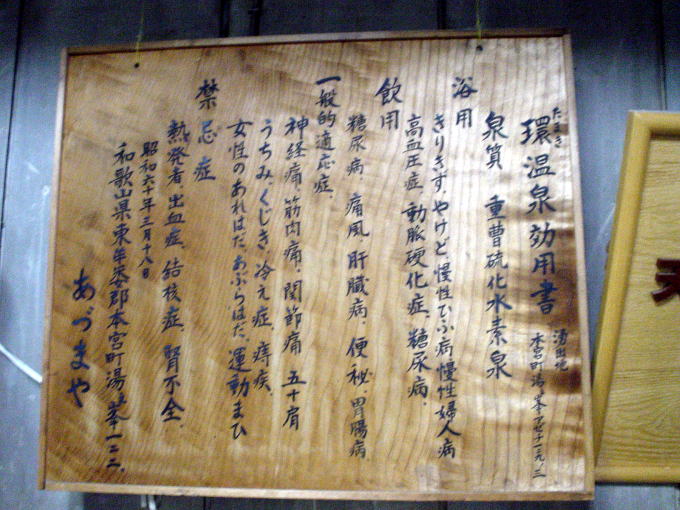 たまき
環温泉効用書
湧出地
本宮町湯ノ峯
泉質 重曹硫化水素泉
浴用
きりきず、やけど、慢性ひふ病慢性婦人病
高血圧症、動脈硬化症、糖尿病、
飲用
糖尿病、痛風、肝臓病、便秘、胃腸病、
一般的適応症、
神経痛、筋肉痛、関節痛 五十肩
うちみ、くじき、冷え症、痔疾、
女性のあれはだ、あぶらはだ、運動まひ
禁忌症
熱発者、出血症、結核症、腎不全
昭和六十年三月十八日
和歌山県東牟婁郡本宮町湯峯一二二、
あづまや
天